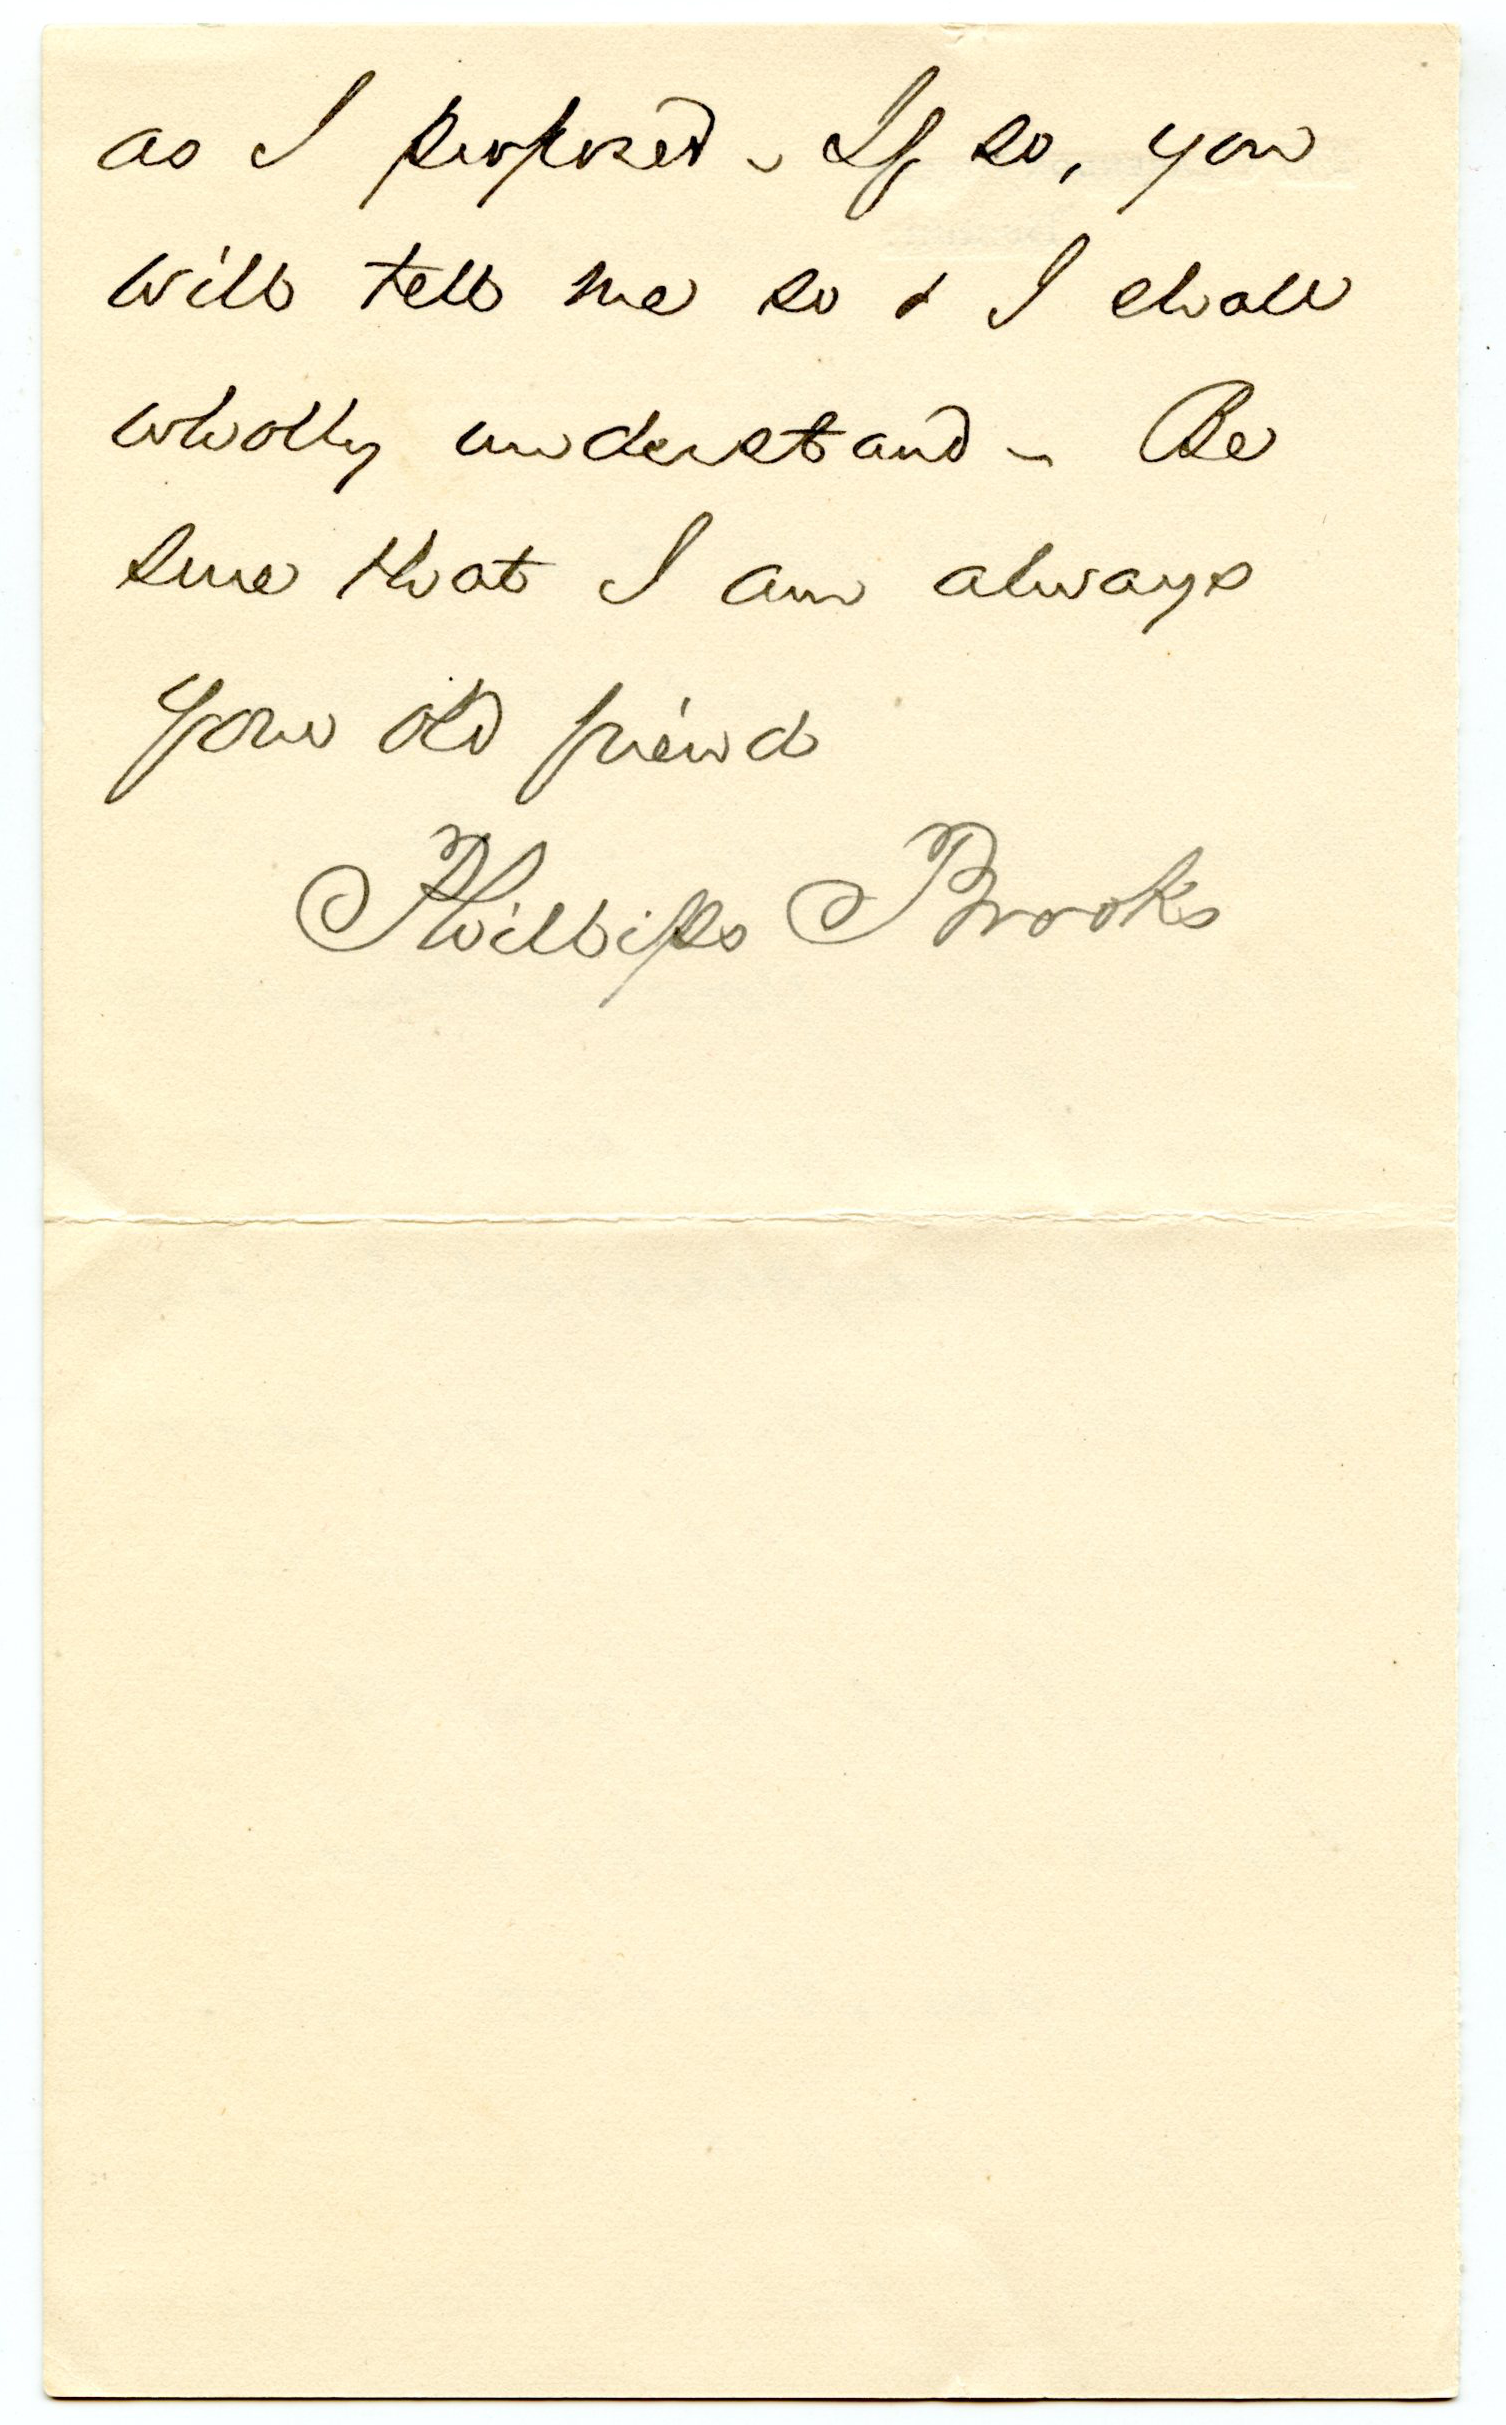 as I proposed - If so, you
will tell me so & I shall
wholly understand - Be
sure that I am always
Your old friend
Phillips Brooks